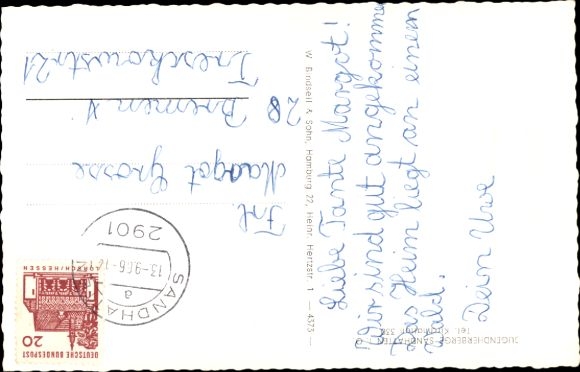 Liebe Tante Margot!
Wir sind gut angekommen
Das Heim liegt an einem
wald.
Dein Uwe
Frl
Margot Grosse
28 Bremen
Treskowstr 21
JUGENDHERBERGE SANDHATTEN
Tel. Kirchhatten 330
W. Bindseil & Sohn, Hamburg 22, Heinr. Hertzstr. 1 — 4375 —
2901
13-9.66-
a
20
DEUTSCHE BUNDESPOST
LORSCH/HESSEN